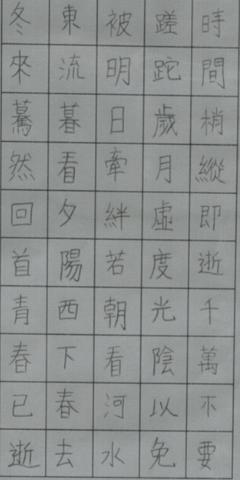 時間梢縱即逝千萬不要
蹉跎歲月虛度光陰以免
被明日牽絆若朝看河水
東流暮看夕陽西下春去
冬來驀然回首青春已逝